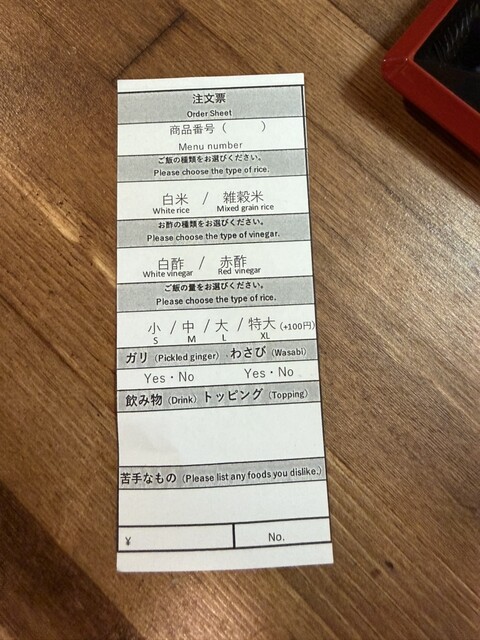 注文票
Order Sheet
商品番号（　　　）
Menu number
ご飯の種類をお選びください。
Please choose the type of rice.
白米 / 雑穀米
White rice Mixed grain rice
お酢の種類をお選びください。
Please choose the type of vinegar.
白酢 / 赤酢
White vinegar Red vinegar
ご飯の量をお選びください。
Please choose the type of rice.
小 / 中 / 大 / 特大 (+100円)
S M L XL
ガリ (Pickled ginger) わさび (Wasabi)
Yes・No Yes・No
飲み物 (Drink) トッピング (Topping)
苦手なもの (Please list any foods you dislike.)
¥ No.